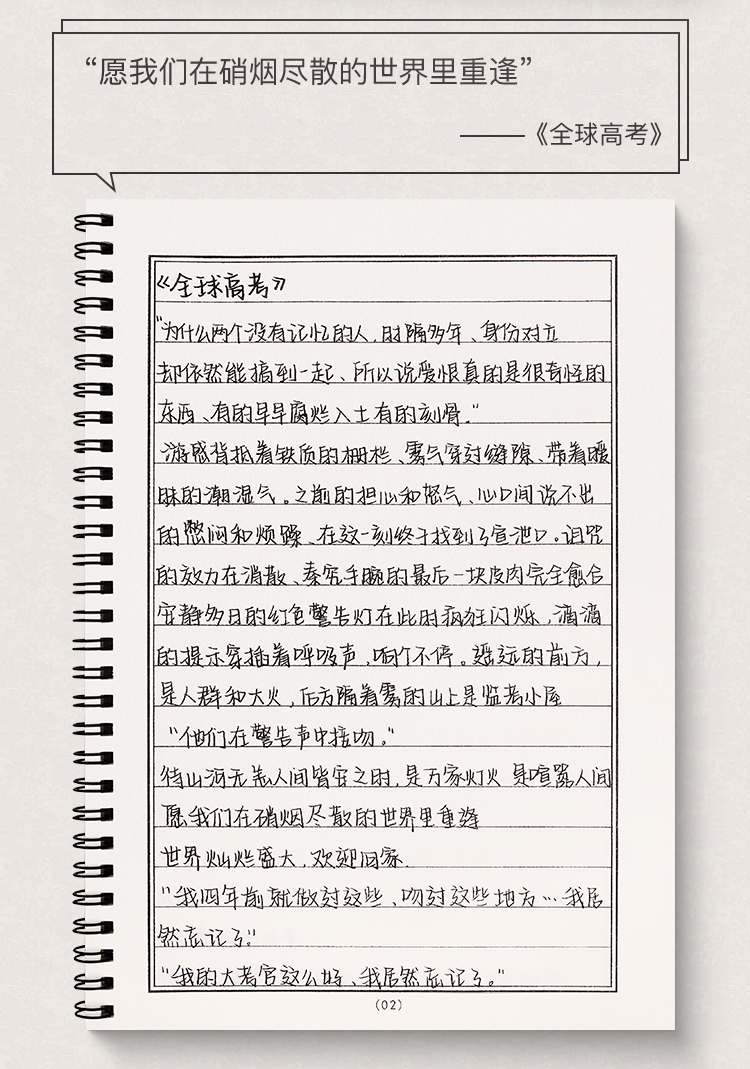 “愿我们在硝烟尽散的世界里重逢”
——《全球高考》
《全球高考》
"为什么两个没有记忆的人,时隔多年、身份对立
却依然能搞到一起、所以说爱恨真的是很奇怪的
东西、有的早早腐烂入土有的刻骨."
游惑背抵着铁质的栅栏、雾气穿过缝隙、带着暧
昧的潮湿气。之前的担心和怒气、心口间说不出
的憋闷和烦躁、在这一刻终于找到了宣泄口。诅咒
的效力在消散、秦究手腕的最后一块皮肉完全愈合
安静多日的红色警告灯在此时疯狂闪烁,滴滴
的提示穿插着呼吸声,响个不停。遥远的前方,
是人群和大火,后方隔着雾的山上是监考小屋
"他们在警告声中接吻。"
待山河无恙人间皆安之时,是万家灯火 是喧嚣人间
愿我们在硝烟尽散的世界里重逢
世界灿烂盛大,欢迎回家.
"我四年前就做过这些、吻过这些地方…我居
然忘记了."
"我的大考官这么好、我居然忘记了。"
(02)